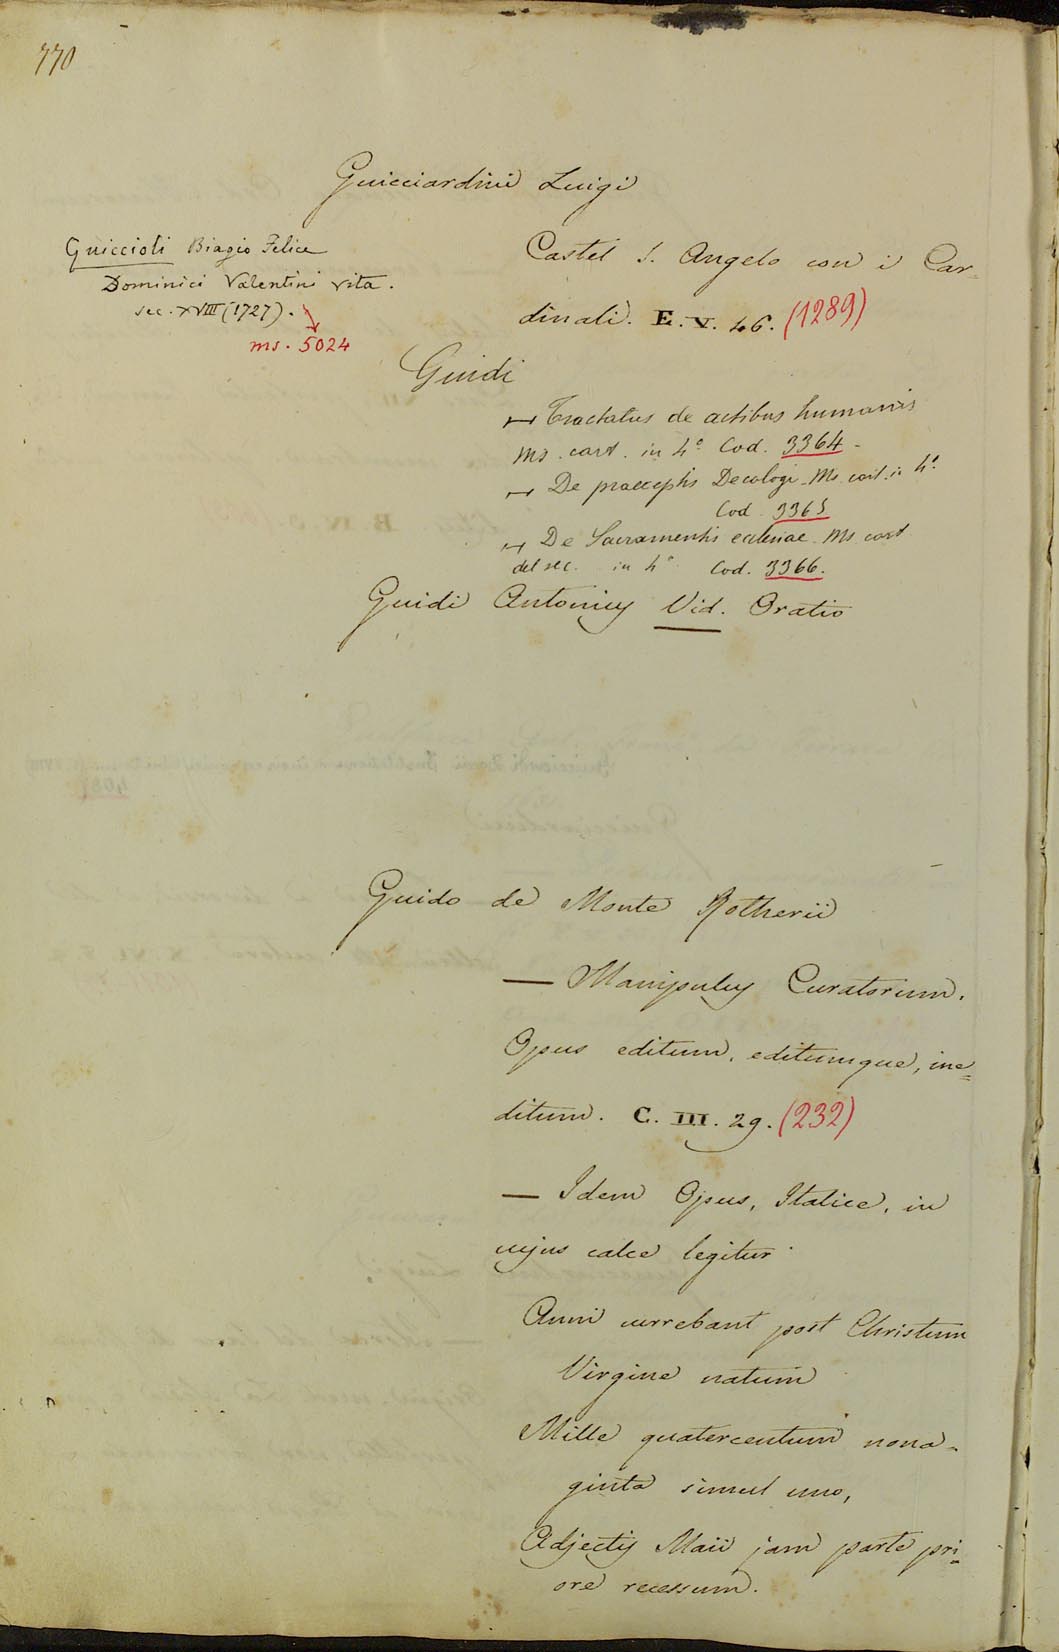 770
Guicciardini Luigi
Castel S. Angelo con i Car-
dinali. E. V. 46. (1289)
Guiccioli Biagio Felice
Dominici Valentini vita.
sec. XVIII (1727).
ms. 5024
Guidi
— Tractatus de actibus humanis
Ms. cart. in 4.° Cod. 3364 -
— De praeceptis Decalogi. Ms. cart. in 4.°
Cod. 3365
— De Sacramentis ecclesiae. Ms. cart
del sec. in 4.° Cod. 3366.
Guidi Antonius Vid. Oratio
Guido de Monte Rotherii
— Manipulus Curatorum.
Opus editum, editumque, ine=
ditum. C. III. 29. (232)
— Idem Opus, Italice, in
cujus calce legitur
Anni currebant post Christum
Virgine natum
Mille quatercentum nona-
ginta simul uno,
Adjectis Maii jam parte pri-
ore recessum.